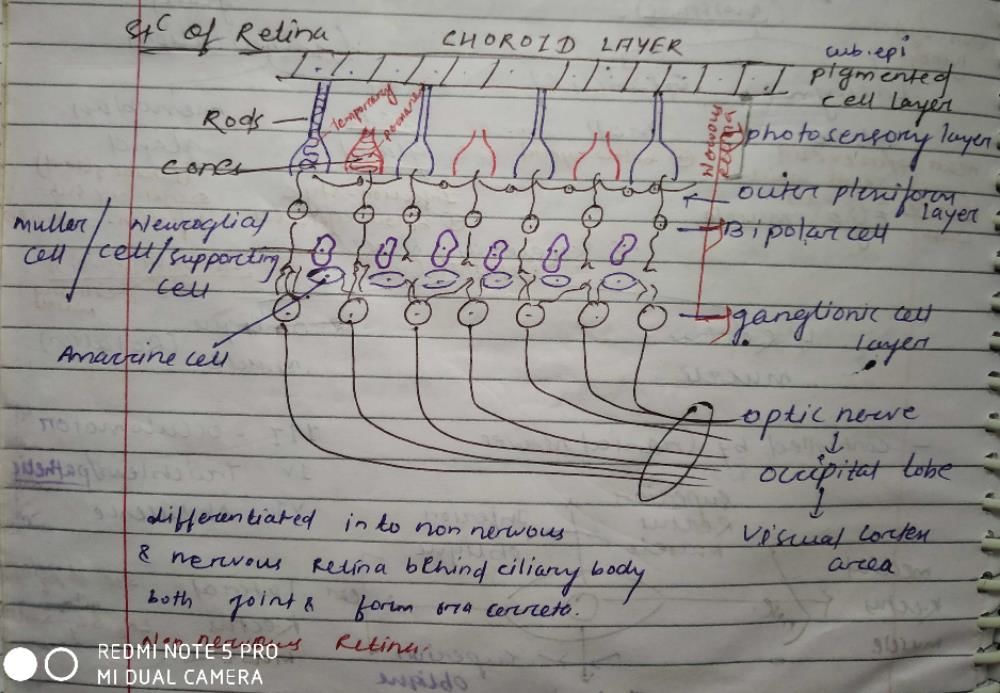 str of Retina
CHOROID LAYER
cub. epi
pigmented
cell layer
Rods
Temporary
permanent
Nervous
Retina
photosensory layer
cones
outer plexiform
layer
muller / Neuroglial
cell / cell / supporting
cell
Bipolar cell
ganglionic cell
layer
Amacrine cell
optic nerve
↓
occipital lobe
↓
Visual cortex
area
differentiated into non nervous
& nervous Retina behind ciliary body
both joint & form ora
Non nervous Retina.
REDMI NOTE 5 PRO
MI DUAL CAMERA